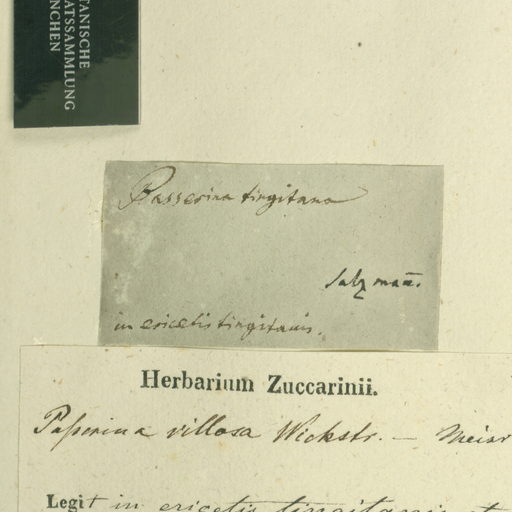 TANISCHE
ATSSAMMLUNG
NCHEN
Passerina tingitana
Salzmañ.
in ericetis tingitanis.
Herbarium Zuccarinii.
Paſserina villosa Wickstr. — Meisn
Legit in ericetis tingitanis et